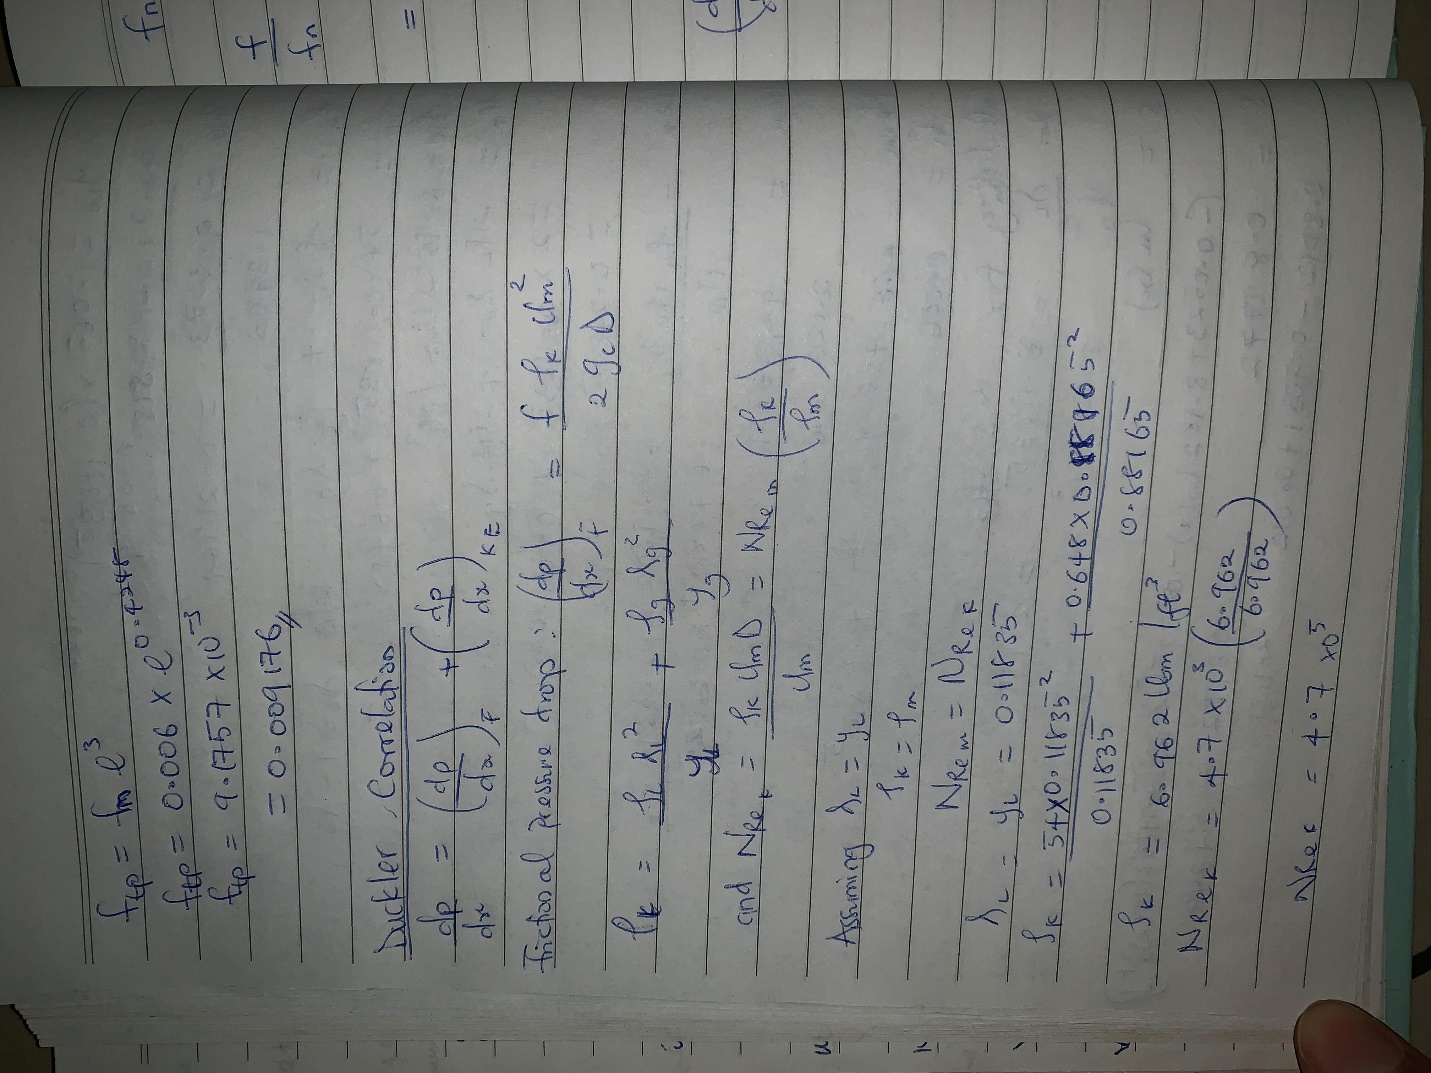 fn
f/fn =
ftp = fm e^3
ftp = 0.006 x e^0.4248
ftp = 9.1757 x10^-3
= 0.009176 //
Duckler Correlation
dp/dx = (dp/dx)F + (dp/dx)KE
Frictional pressure drop : (dp/dx)F = f ρk Um^2 / 2 gc D
ρk = ρL λL^2 / yL + ρg λg^2 / yg
and NRek = ρk Um D / Um = NRem (ρk/ρm)
Assuming λL = yL
ρk = ρm
NRem = NRek
λL = yL = 0.11835
ρk = 54x0.11835^2 / 0.11835 + 0.648 x 0.88165^2 / 0.88165
ρk = 6.962 lbm/ft^3
NRek = 4.7 x10^5 (6.962/6.962)
NRek = 4.7 x10^5